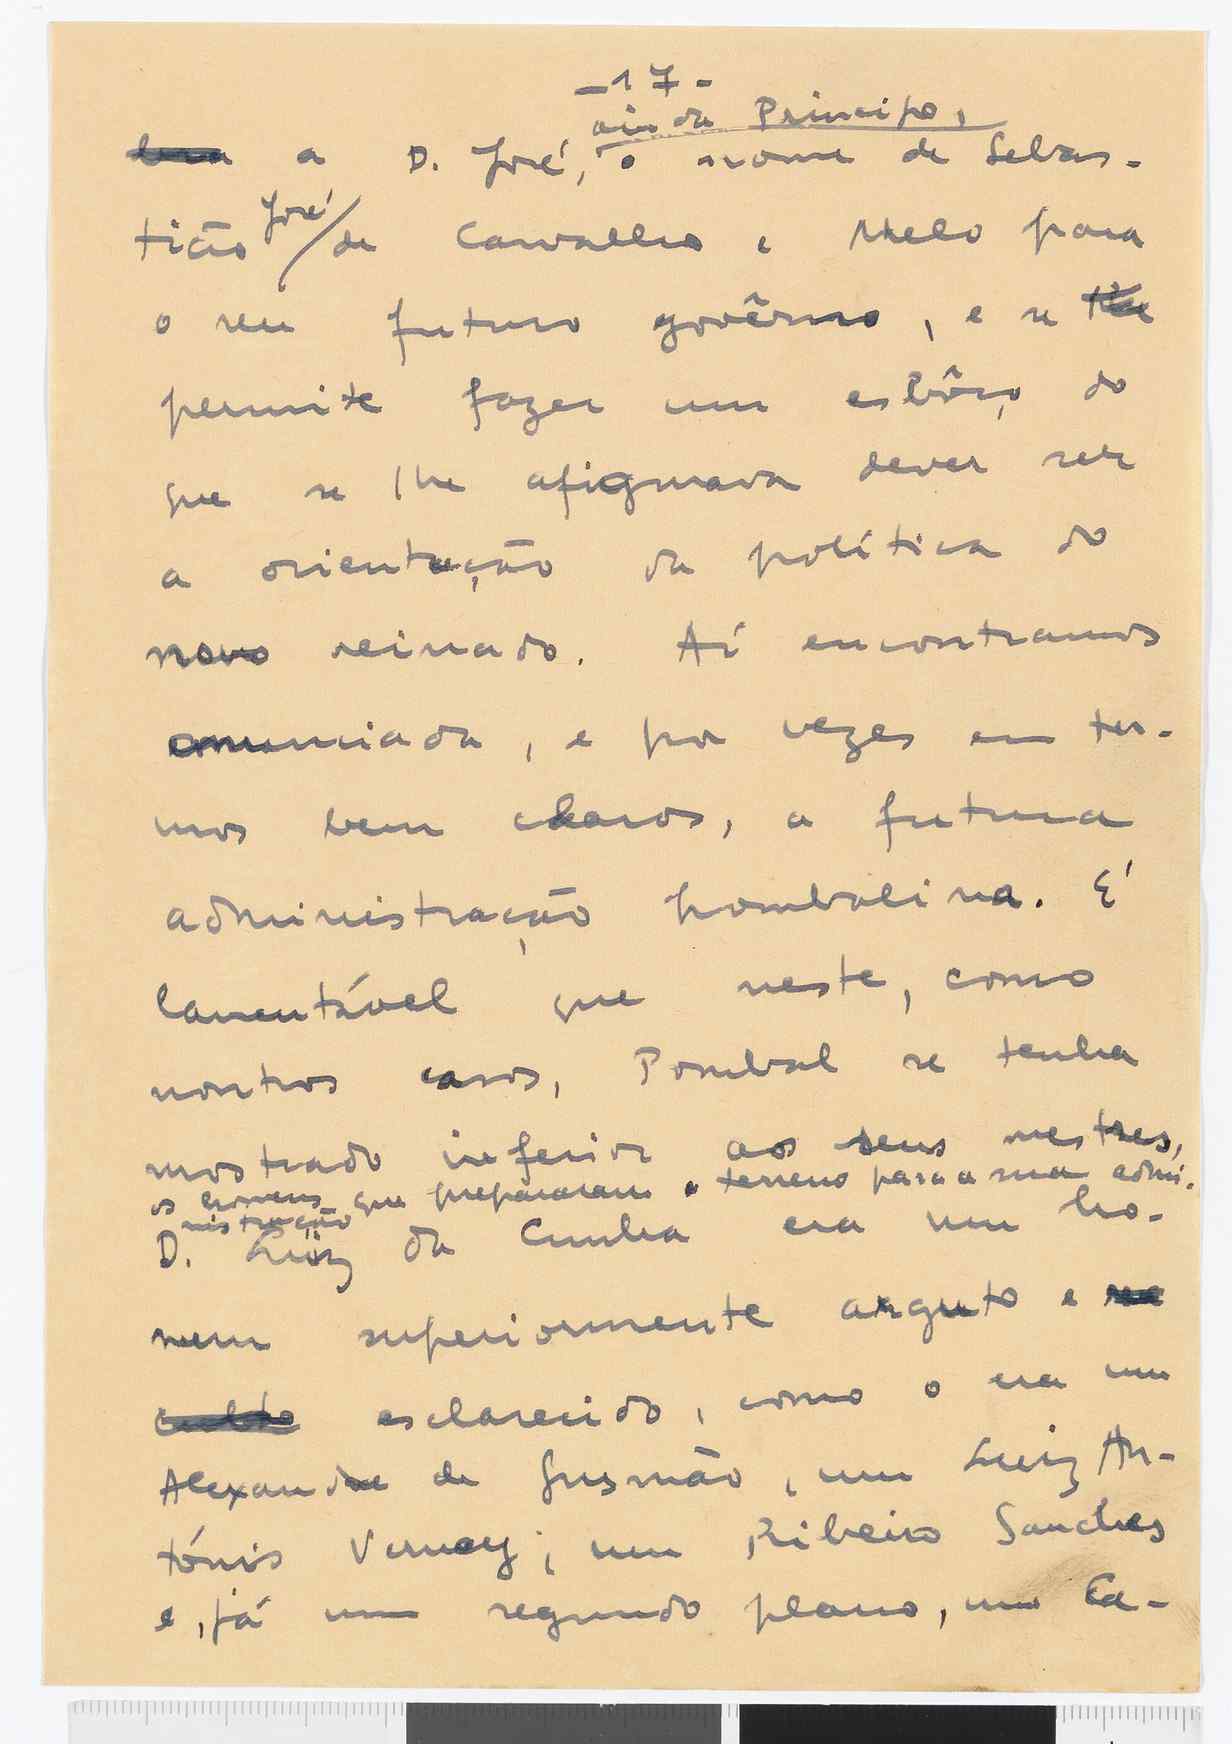 -17-
ainda Principe,
a D. José, o nome de Sebas-
tião José de Carvalho e Melo para
o seu futuro govêrno, e se lhe
permite fazer um esbôço do
que se lhe afigurava dever ser
a orientação da política do
novo reinado. Aí encontramos
anunciada, e por vezes em ter-
mos bem claros, a futura
administração pombalina. É
lamentável que neste, como
noutros casos, Pombal se tenha
mostrado inferior aos seus mestres,
os homens que prepararam o terreno para a sua admi-
nistração
D. Luiz da Cunha era um ho-
mem superiormente arguto e
esclarecido, como o era um
Alexandre de Gusmão, um Luiz An-
tónio Verney, um Ribeiro Sanches
e, já num segundo plano, um Ca-